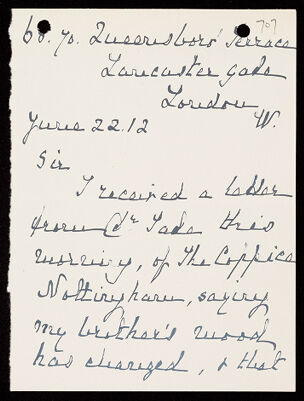 68. 70. Queensboro' Terrace
Lancaster Gate
London
W.
June 22.12
Sir
I received a letter
from Dr Tate this
morning, of The Coppice
Nottingham, saying
my brother's mood
has changed, & that
707